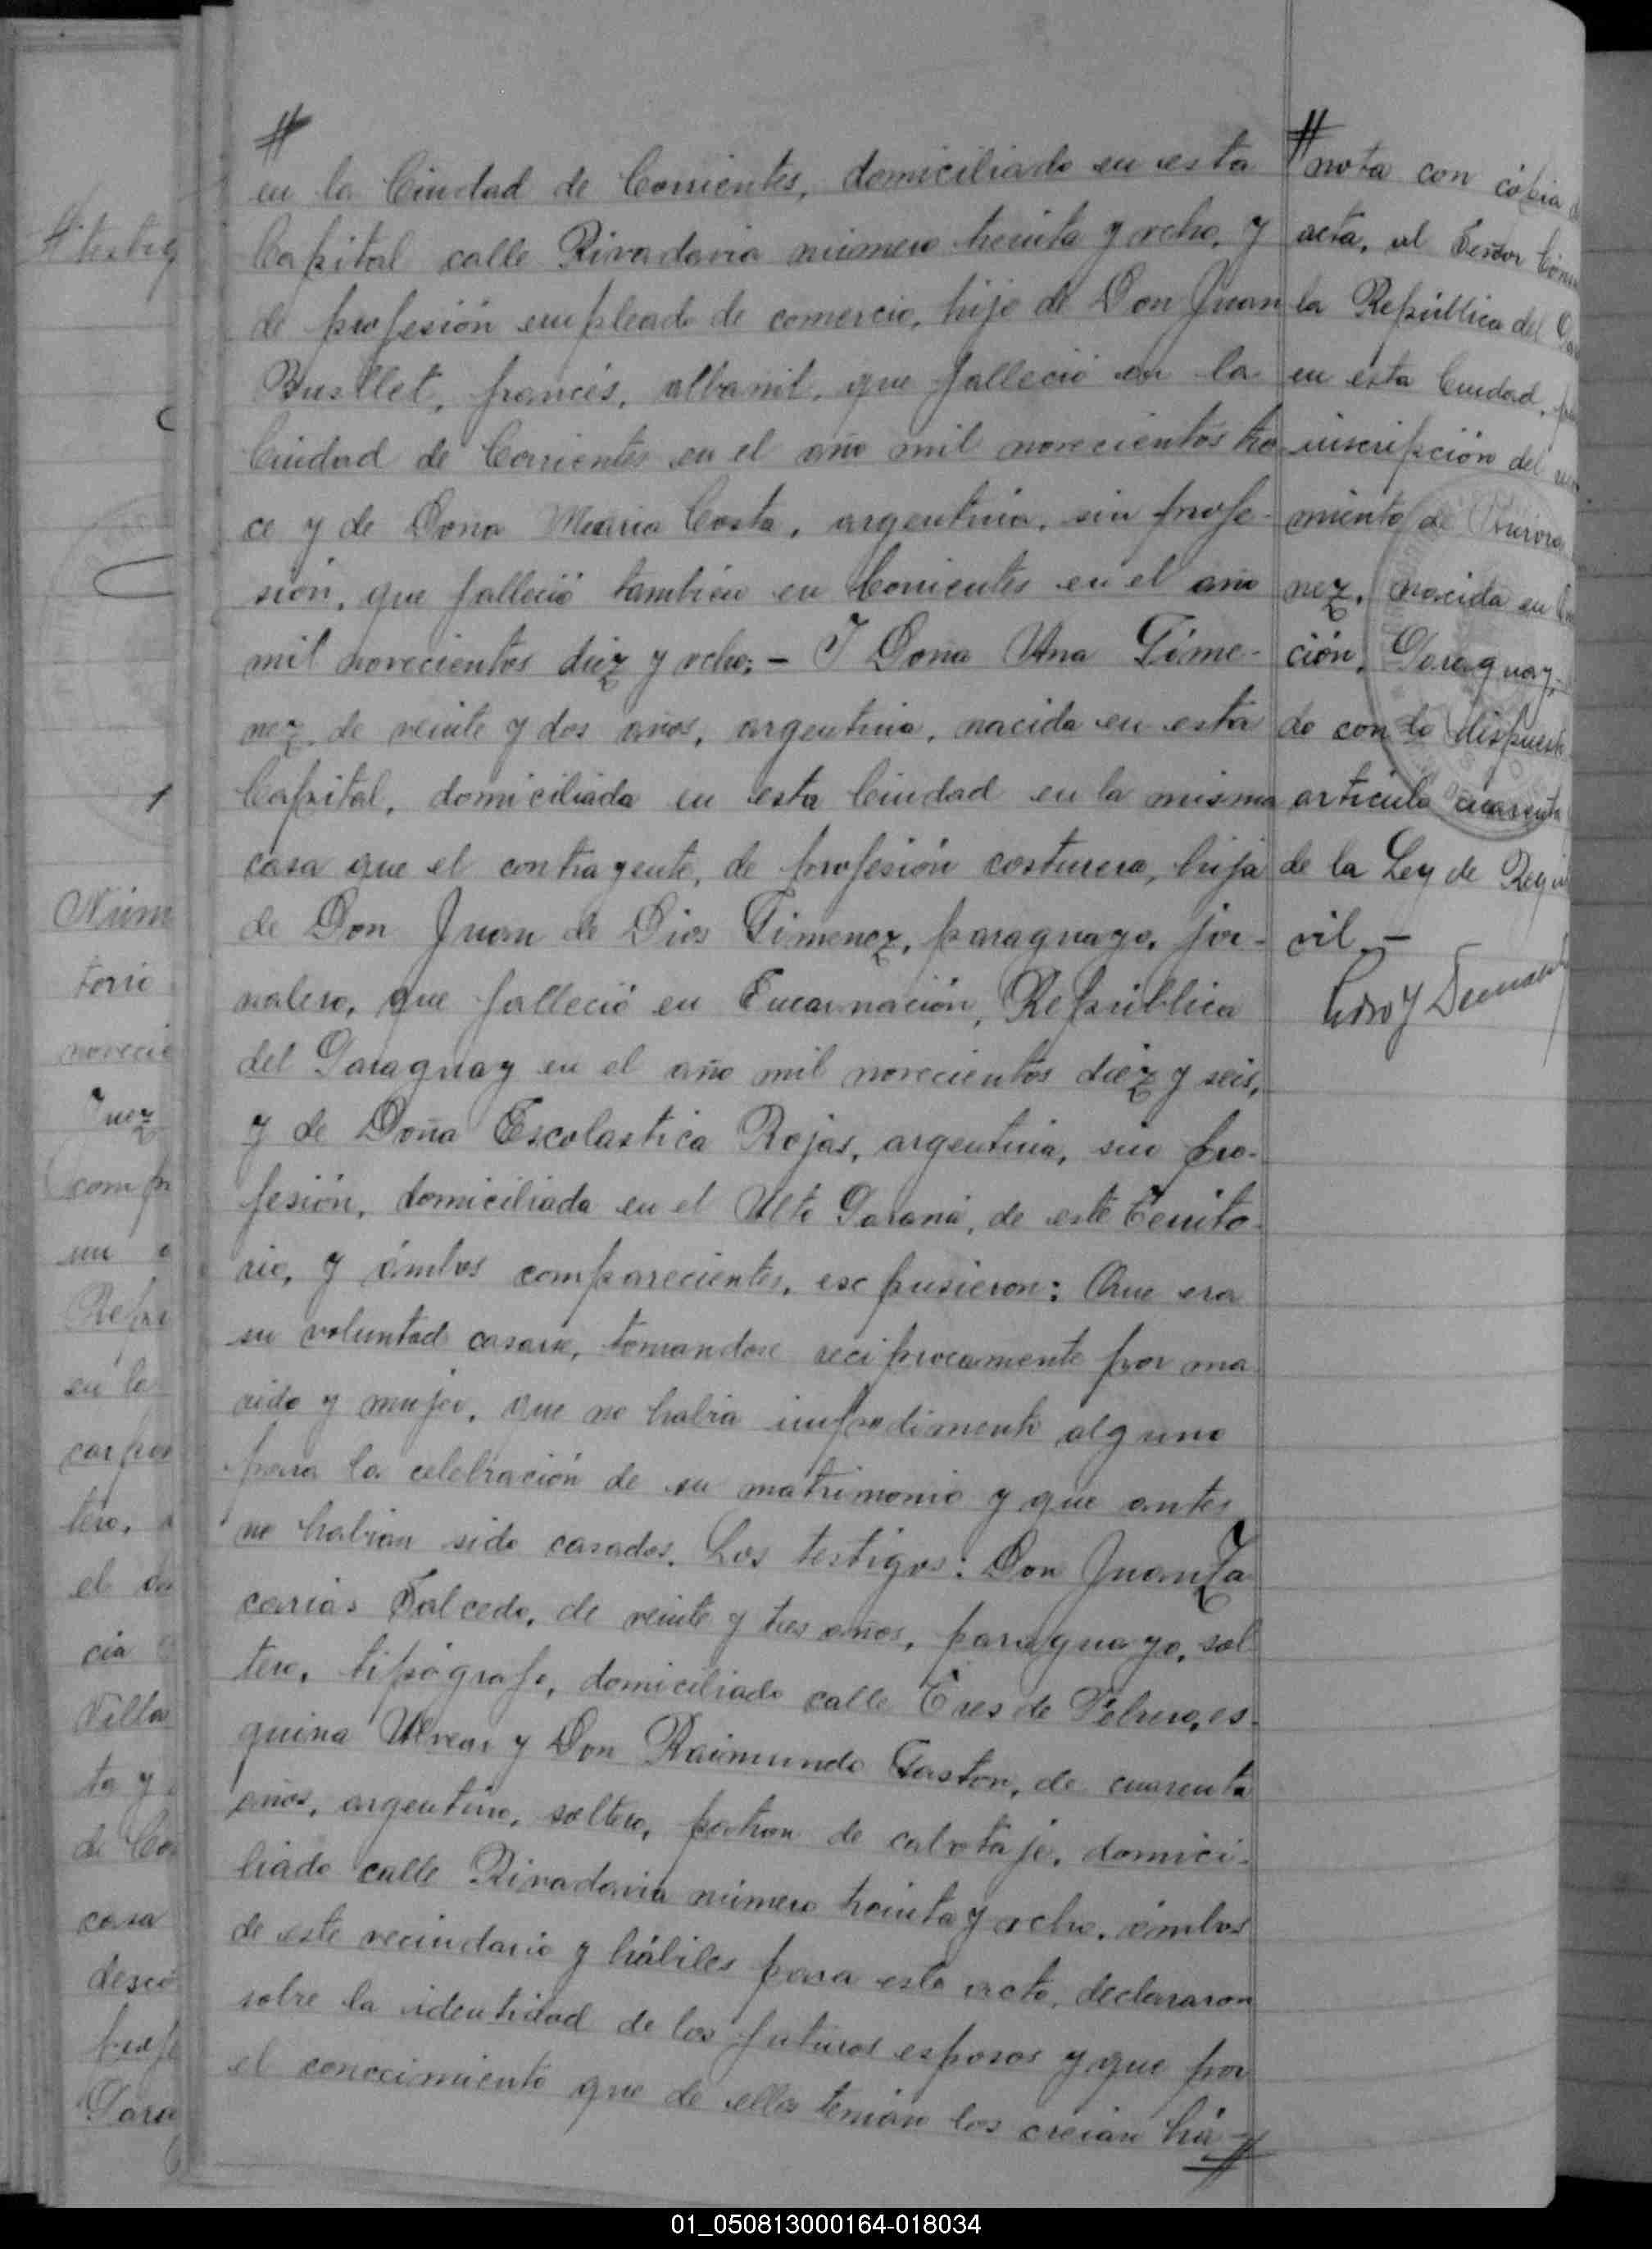 #
en la Ciudad de Corrientes, domiciliado en esta
Capital calle Rivadavia número treinta y ocho, y
de profesión empleado de comercio, hijo de Don Juan
Busllet, francés, albanil, que falleció en la
Ciudad de Corrientes en el año mil novecientos tre
ce y de Doña Maria Costa, argentina, sin profe-
sión, que falleció tambien en Corrientes en el año
mil novecientos diez y ocho; - I Doña Ana Gime-
nez, de veinte y dos años, argentina, nacida en esta
Capital, domiciliada en esta Ciudad en la misma
casa que el contrayente, de profesión costurera, hija
de Don Juan de Dios Gimenez, paraguayo, jor-
nalero, que falleció en Encarnación, República
del Paraguay en el año mil novecientos diez y seis,
y de Doña Escolastica Rojas, argentina, sin pro-
fesión, domiciliada en el Alto Paraná, de este Territo-
rio, y ámbos comparecientes, expusieron: Que era
su voluntad casarse, tomandose reciprocamente por ma
rido y mujer, que no habia impedimento alguno
para la celebración de su matrimonio y que antes
no habian sido casados. Los testigos: Don Juan Za
carias Salcedo, de veinte y tres años, paraguayo, sol
tero, tipógrafo, domiciliado calle Tres de Febrero, es-
quina Alvear y Don Raimundo Gaston, de cuarenta
años, argentino, soltero, patron de cabotaje, domici-
liado calle Rivadavia número treinta y ocho, ámbos
de este vecindario y hábiles para este acto, declararon
sobre la identidad de los futuros esposos y que por
el conocimiento que de ellos tenian los creian há-
#
# nota con cópia
acta, al Señor
la República del
en esta Ciudad,
inscripción del
miento de Aurora
nez, nacida en
ción, Paraguay,
do con lo dispuesto
articulo cuarenta
de la Ley de
vil. -
Núm
torio
novecie
nez
comp
un
Repu
en la
tero,
el
cia
Villa
ta y
de
casa
prof
Para
01_050813000164-018034